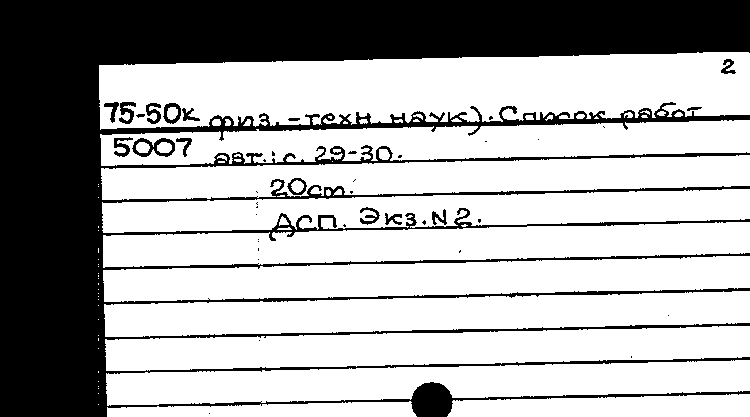 2
75-50к физ.-техн. наук). Список работ
5007 авт.: с. 29-30.
20cm.
ДСП. Экз. N2.